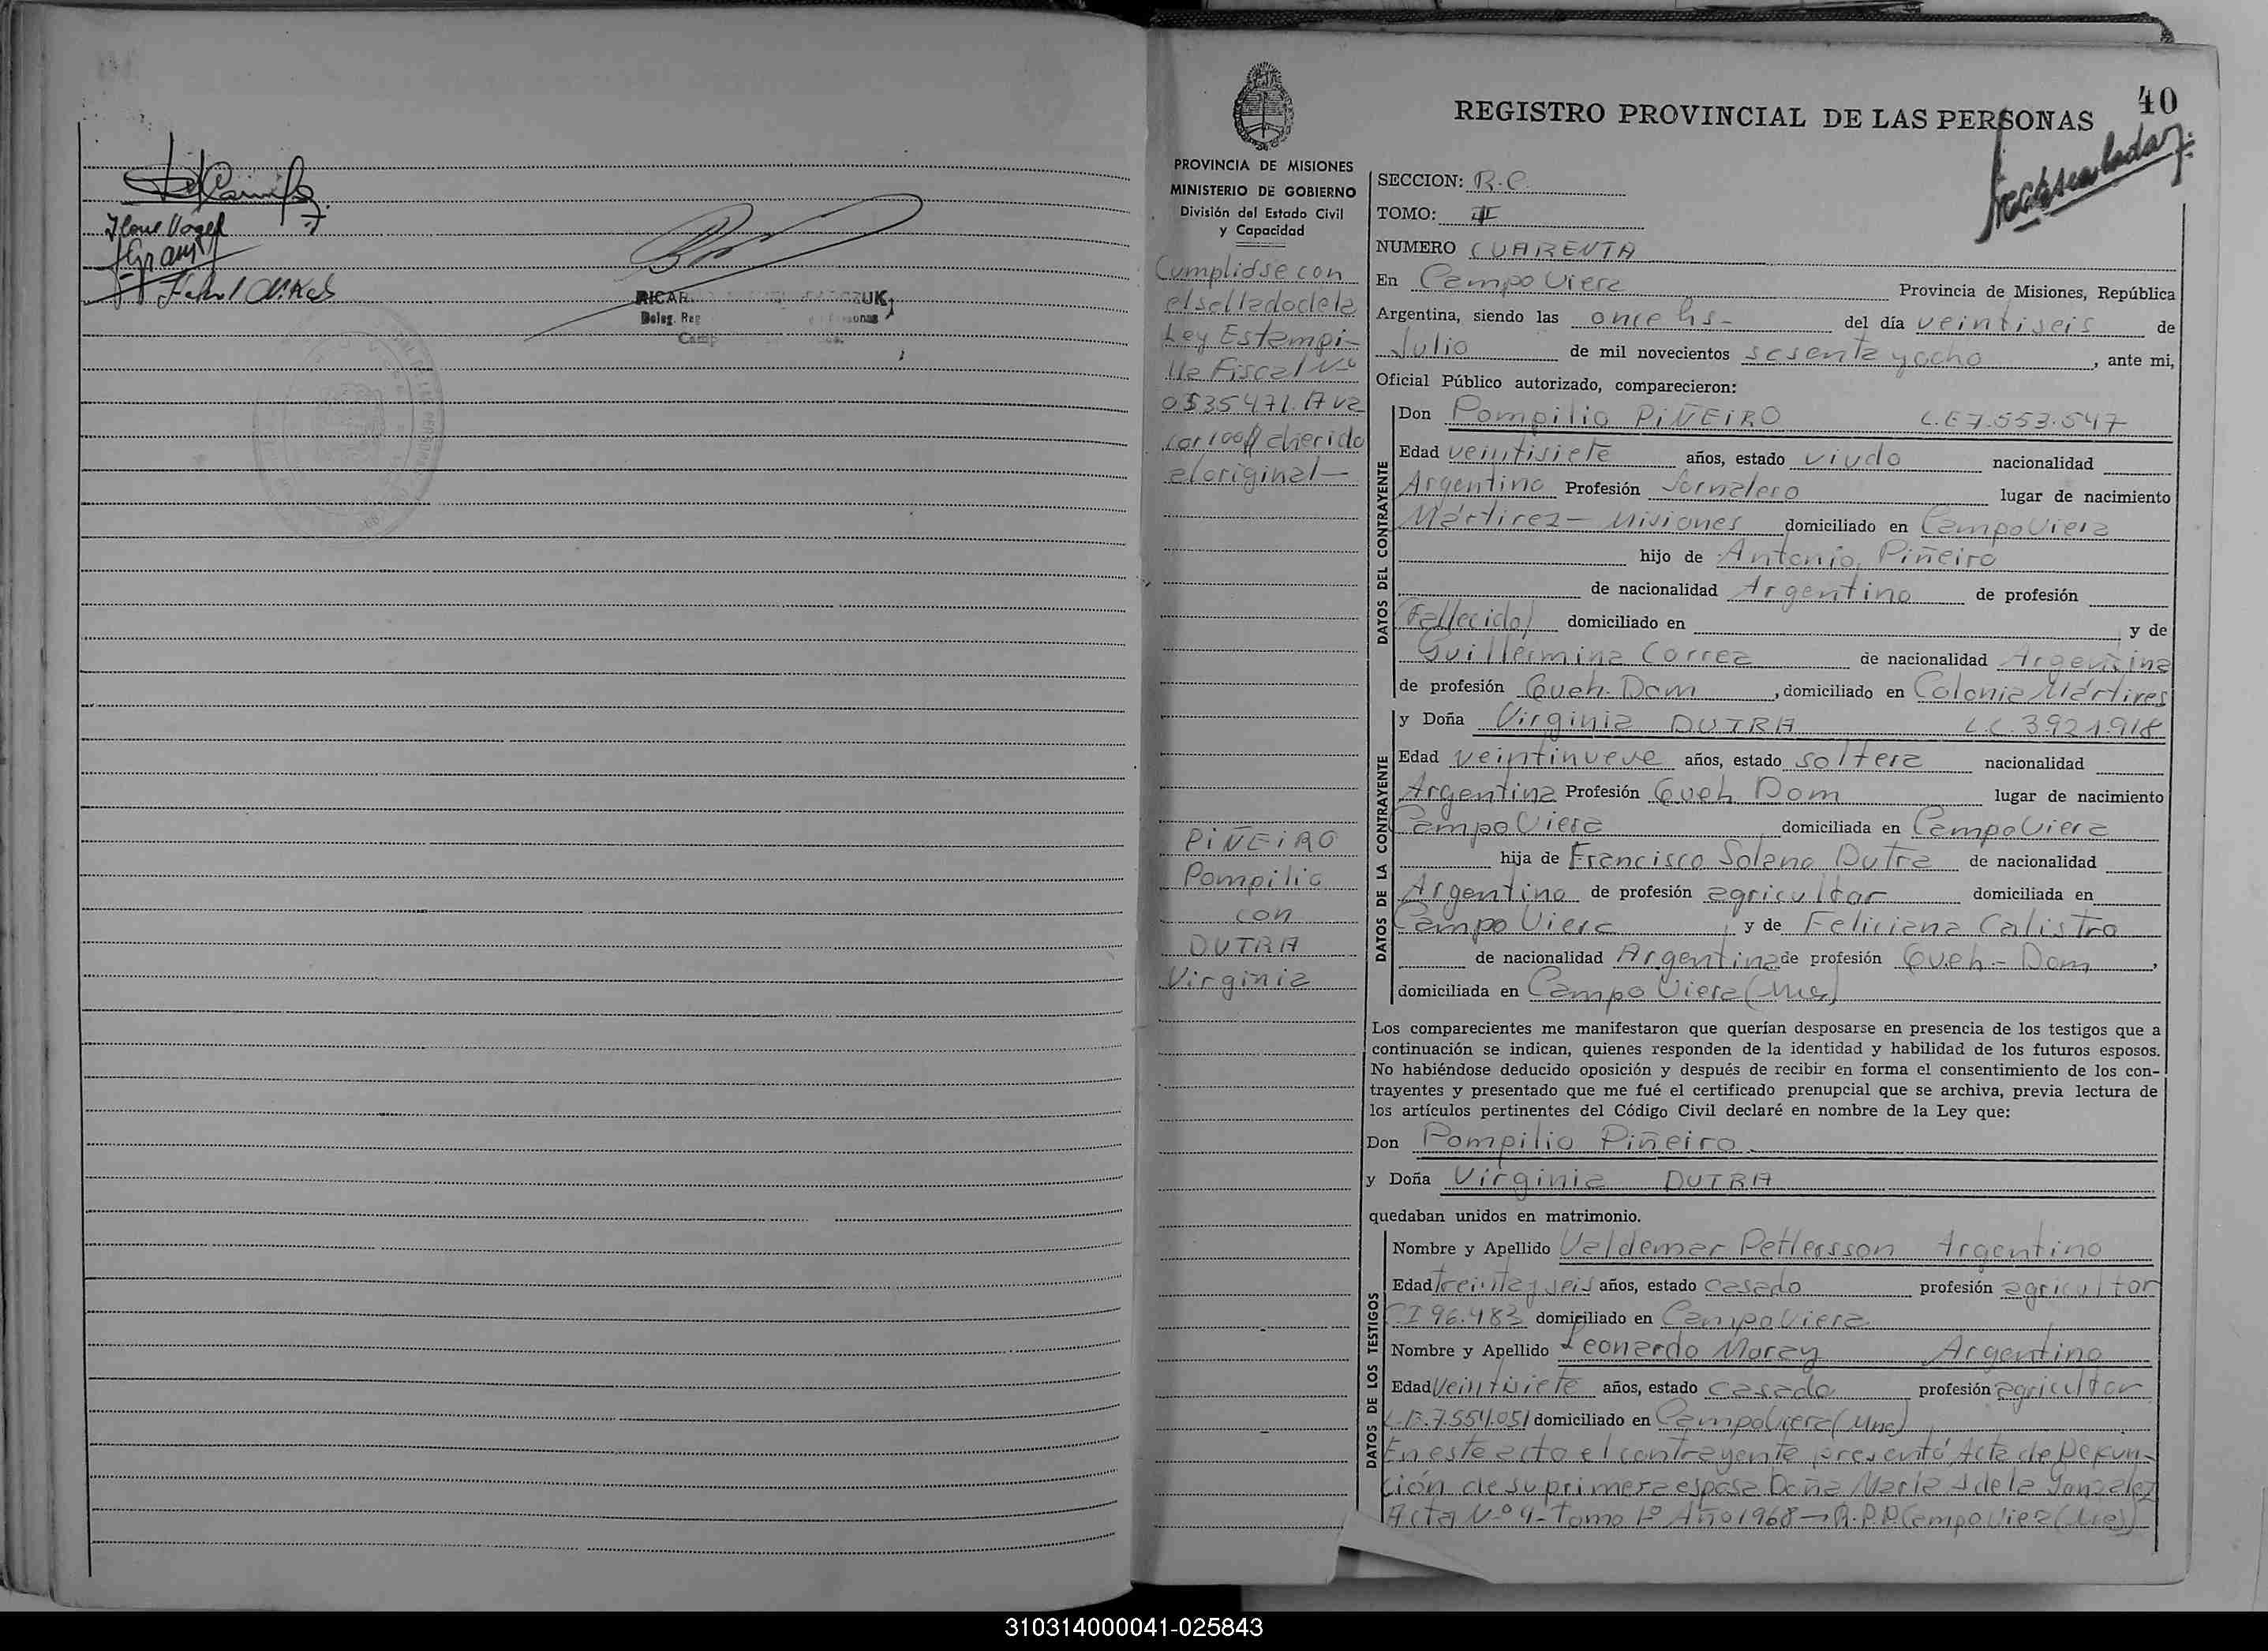 Ilone Vogel
RICAR
Deleg. Reg
Camp
40
REGISTRO PROVINCIAL DE LAS PERSONAS
PROVINCIA DE MISIONES
MINISTERIO DE GOBIERNO
División del Estado Civil
y Capacidad
Cumplidse con
el sellado de la
Ley Estampi-
lla Fiscal Nº
0535471. A va
lor 100 adherido
al original —
PIÑEIRO
Pompilio
con
DUTRA
Virginia
SECCION: R.C.
TOMO: II
NUMERO CUARENTA
En Campo Viera Provincia de Misiones, República
Argentina, siendo las once hs- del día veintiseis de
Julio de mil novecientos sesenta y ocho, ante mi,
Oficial Público autorizado, comparecieron:
DATOS DEL CONTRAYENTE
Don Pompilio PIÑEIRO L.E 7.553.547
Edad veintisiete años, estado viudo nacionalidad
Argentino Profesión Jornalero lugar de nacimiento
Mártires - Misiones domiciliado en Campo Viera
hijo de Antonio Piñeiro
de nacionalidad Argentino de profesión
(Fallecido) domiciliado en y de
Guillermina Correa de nacionalidad Argentina
de profesión Queh. Dom, domiciliado en Colonia Mártires
DATOS DE LA CONTRAYENTE
y Doña Virginia DUTRA L.C. 3.921.918
Edad veintinueve años, estado soltera nacionalidad
Argentina Profesión Queh Dom lugar de nacimiento
Campo Viera domiciliada en Campo Viera
hija de Francisco Solano Dutra de nacionalidad
Argentino de profesión agricultor domiciliada en
Campo Viera, y de Feliciana Calistro
de nacionalidad Argentina de profesión Queh- Dom,
domiciliada en Campo Viera (Mnes)
Los comparecientes me manifestaron que querían desposarse en presencia de los testigos que a
continuación se indican, quienes responden de la identidad y habilidad de los futuros esposos.
No habiéndose deducido oposición y después de recibir en forma el consentimiento de los con-
trayentes y presentado que me fué el certificado prenupcial que se archiva, previa lectura de
los artículos pertinentes del Código Civil declaré en nombre de la Ley que:
Don Pompilio Piñeiro
y Doña Virginia DUTRA
quedaban unidos en matrimonio.
DATOS DE LOS TESTIGOS
Nombre y Apellido Valdemar Pettersson Argentino
Edad treinta y seis años, estado casado profesión agricultor
C.I 96.483 domiciliado en Campo Viera
Nombre y Apellido Leonardo Moray Argentino
Edad veintisiete años, estado casado profesión agricultor
L.E. 7.554.051 domiciliado en Campo Viera (Mnes)
En este acto el contrayente presentó Acta de Defun-
ción de su primera esposa Doña María Adela Gonzalez
Acta Nº 4- Tomo 1º Año 1968 - R.P.P Campo Viera (Mnes)
310314000041-025843